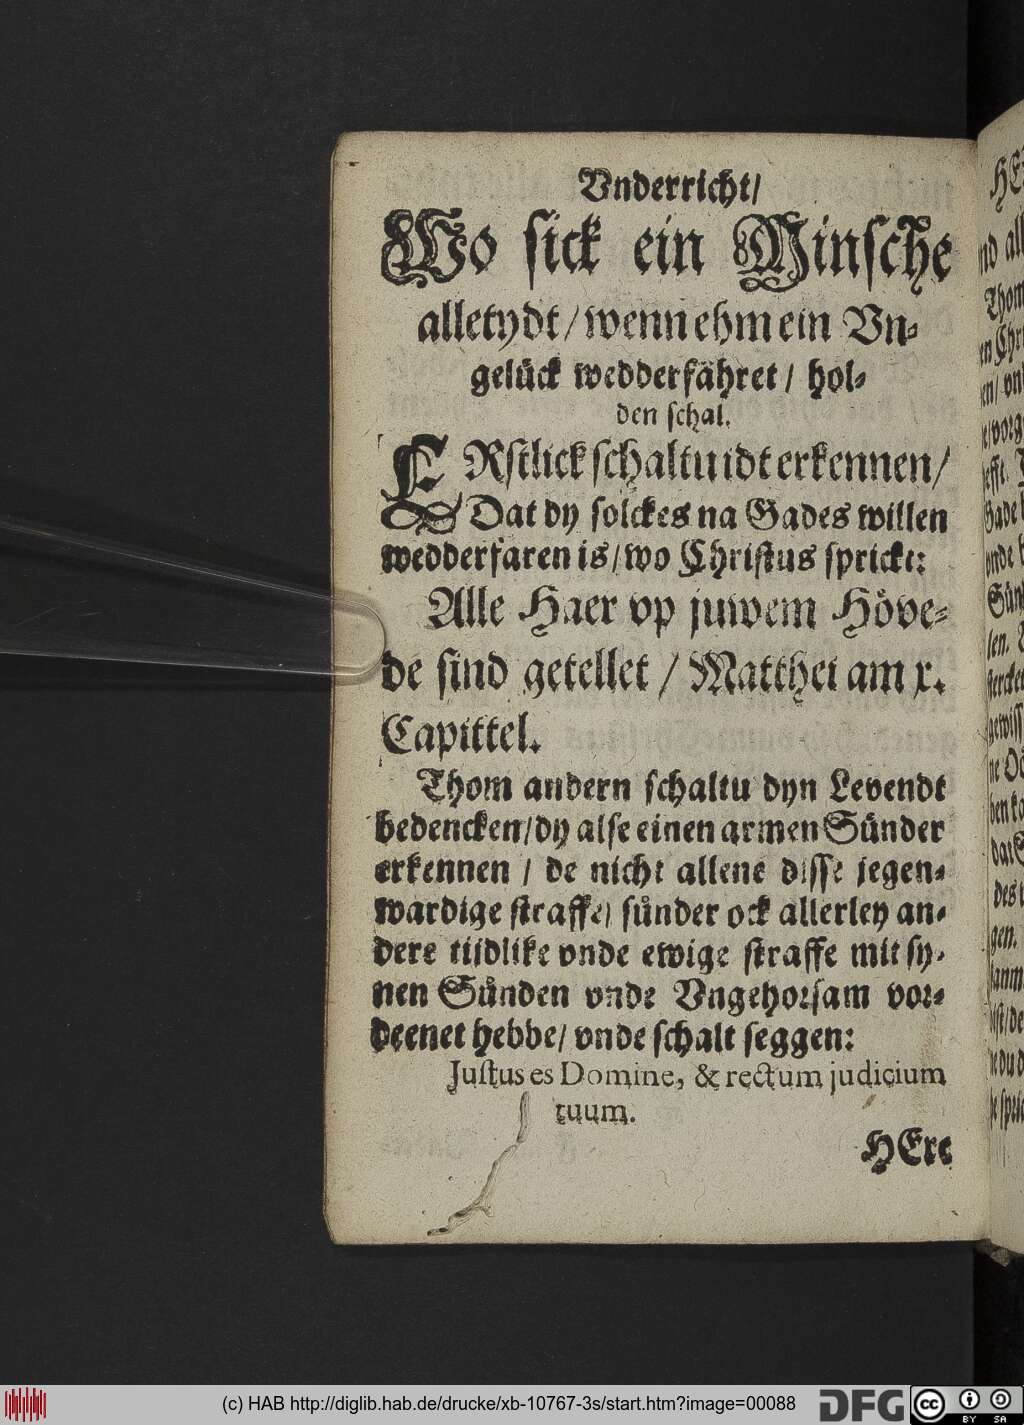 Vnderricht/
Wo sick ein Minsche
alletydt/wenn ehm ein Vn-
gelück wedderfähret / hol-
den schal.
ERstlick schaltu idt erkennen/
Dat dy solckes na Gades willen
wedderfaren is/wo Christus sprickt:
Alle Haer vp juwem Höve-
de sind getellet / Matthei am x.
Capittel.
Thom andern schaltu dyn Levendt
bedencken/dy alse einen armen Sünder
erkennen / de nicht allene disse jegen-
wardige straffe/ sünder ock allerley an-
dere tijdlike vnde ewige straffe mit sy-
nen Sünden vnde Vngehorsam vor-
deenet hebbe/ vnde schalt seggen:
Justus es Domine, & rectum judicium
tuum.
HEre
(c) HAB http://diglib.hab.de/drucke/xb-10767-3s/start.htm?image=00088
DFG
cc
BY SA